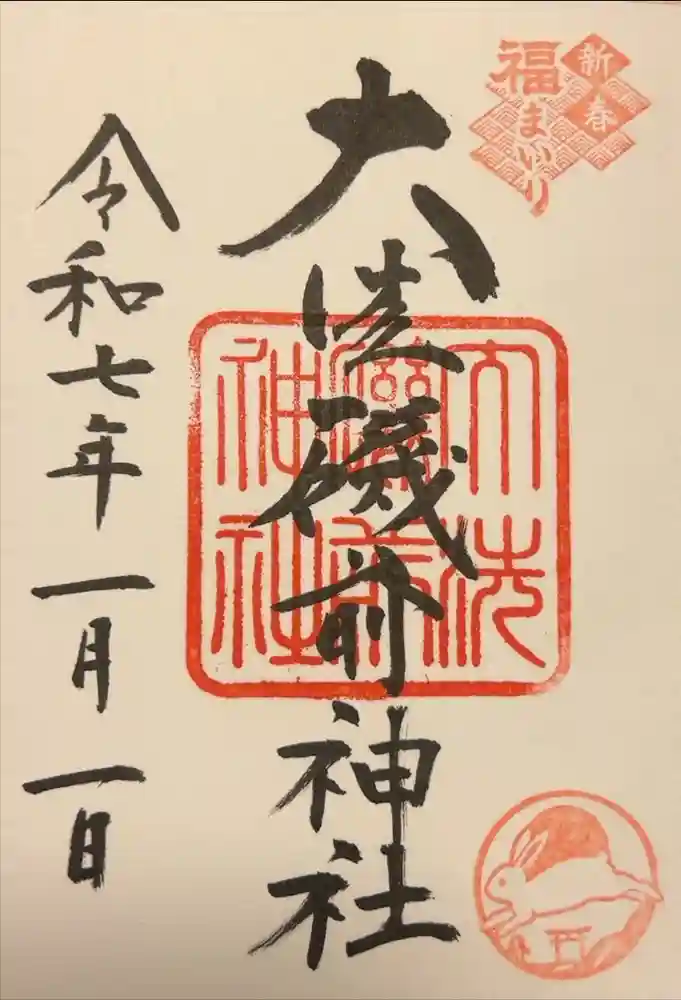 新春
福まいり
大洗磯前神社
大洗磯前神社
令和七年一月一日